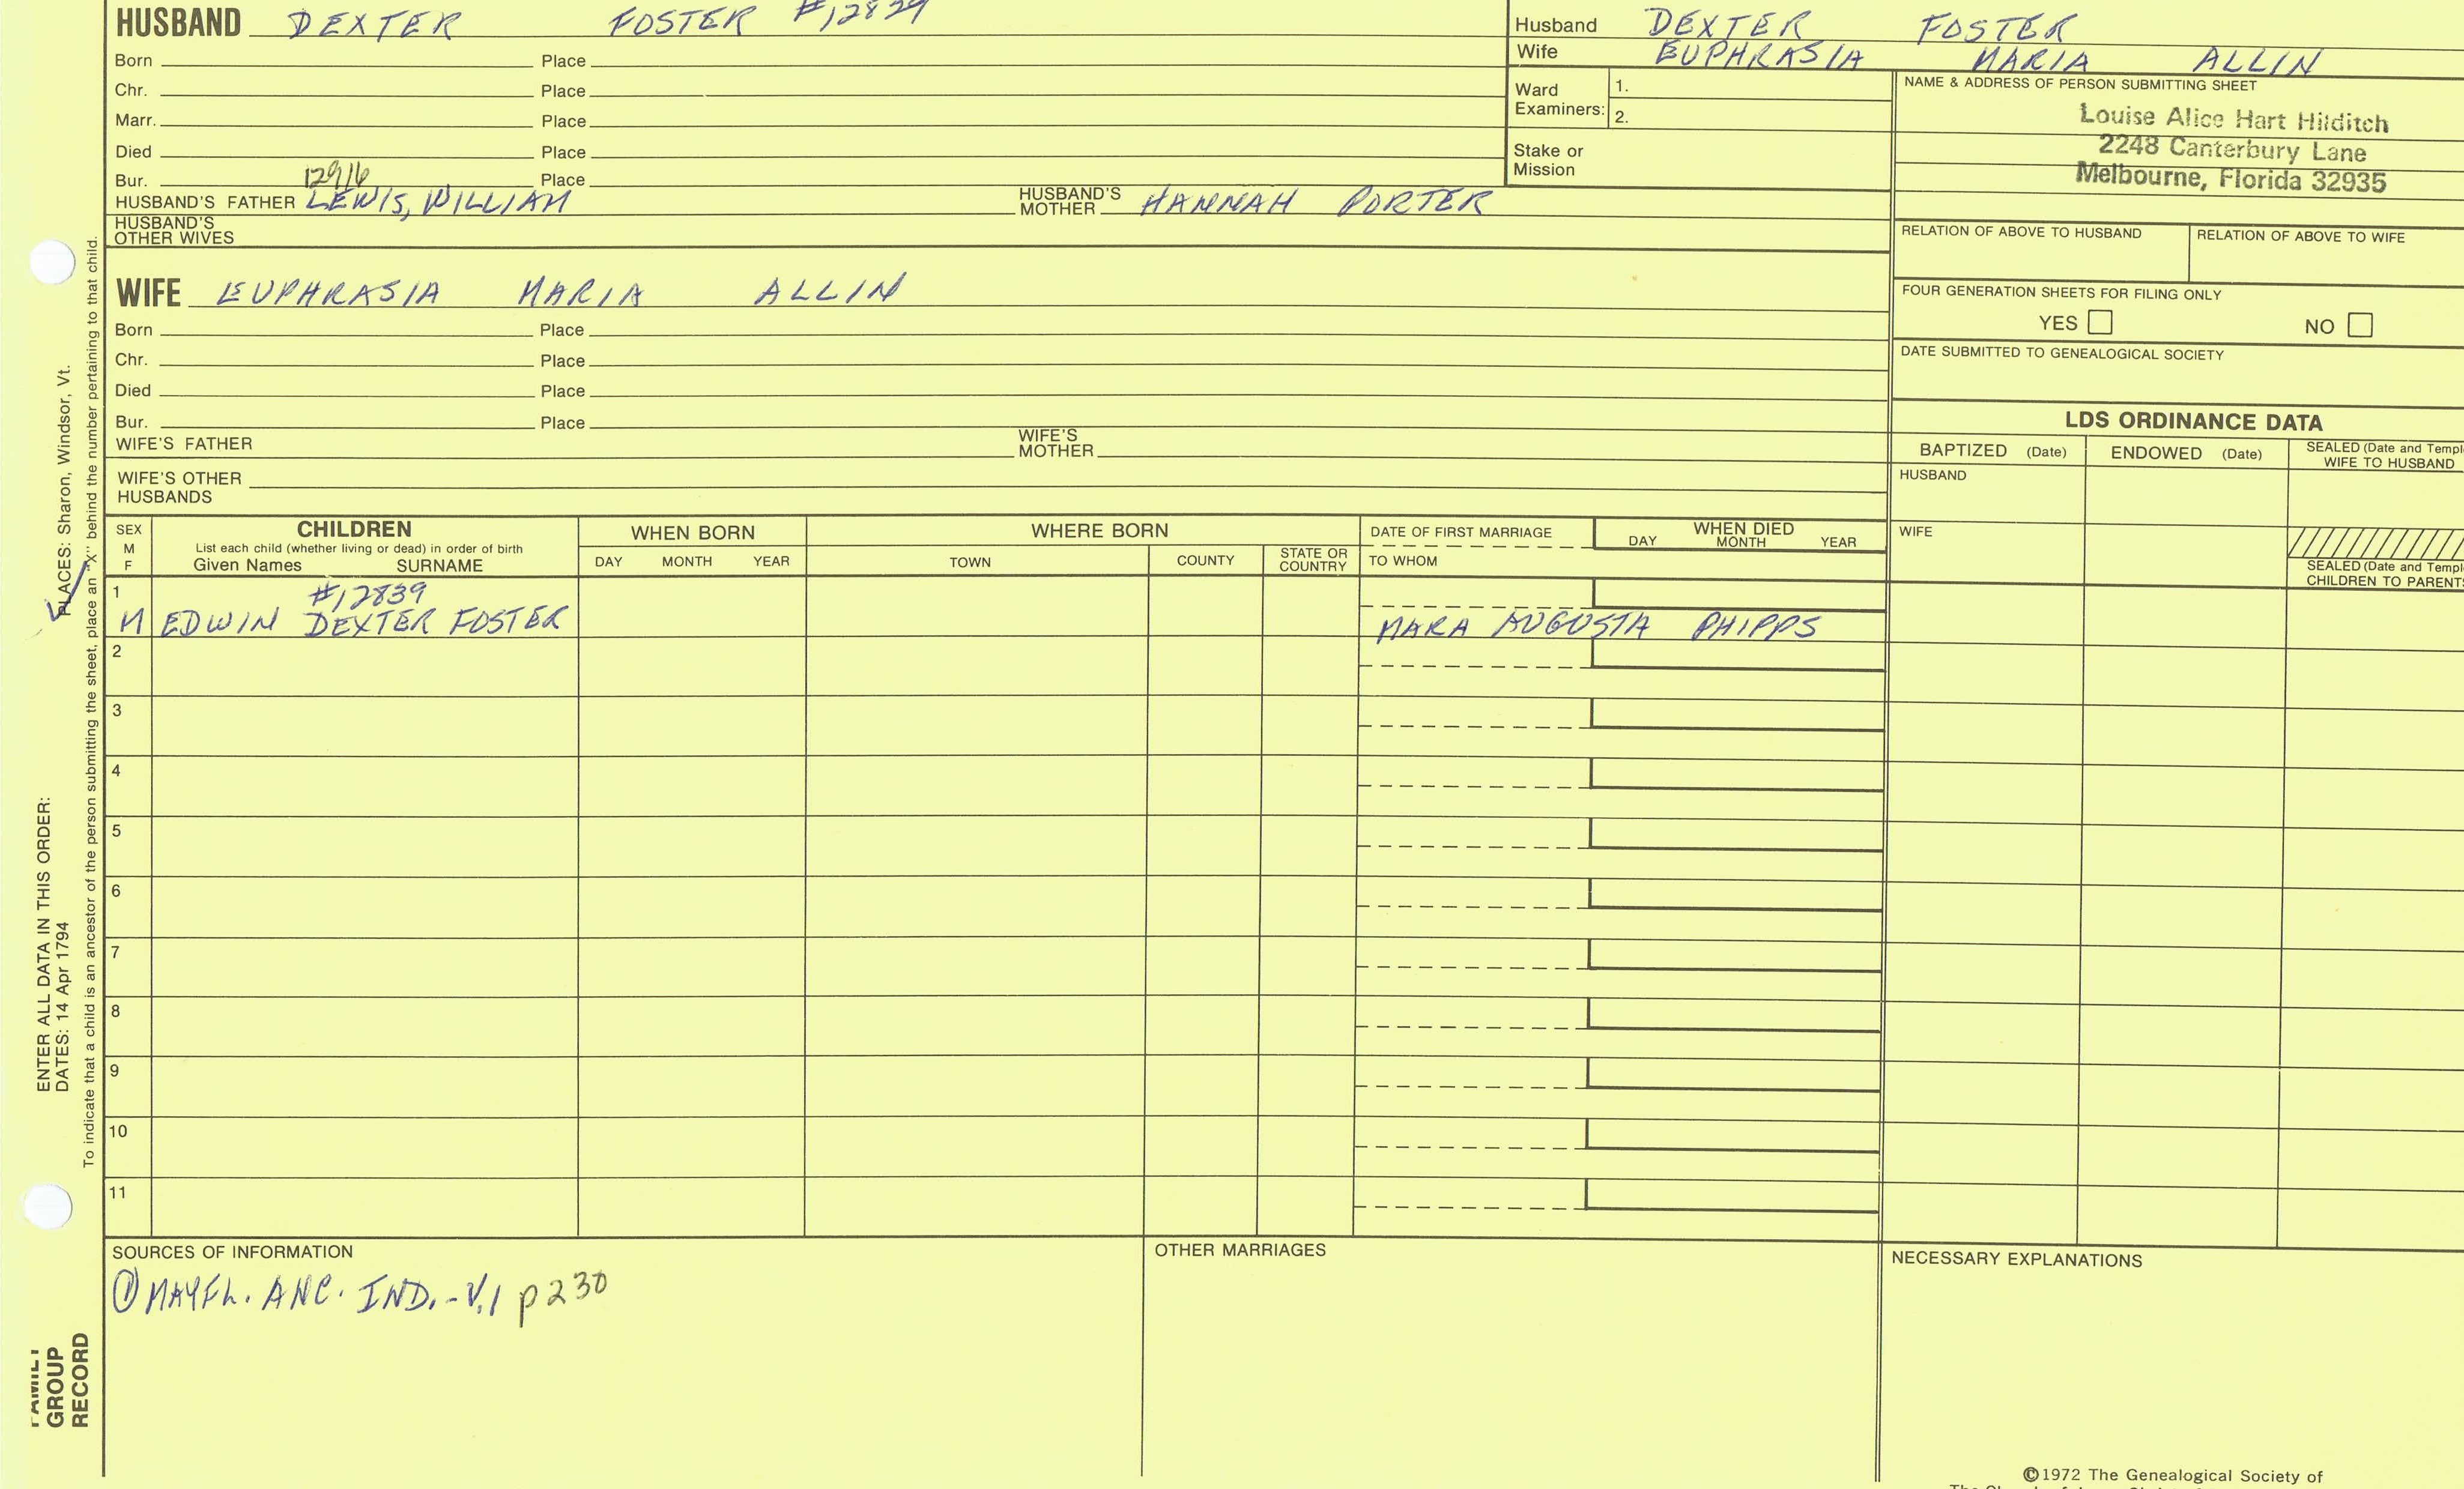 HUSBAND DEXTER FOSTER #12829
Born Place
Chr. Place
Marr. Place
Died Place
Bur. Place
12916
HUSBAND'S FATHER LEWIS, WILLIAM HUSBAND'S MOTHER HANNAH PORTER
HUSBAND'S
OTHER WIVES
Husband DEXTER FOSTER
Wife EUPHRASIA MARIA ALLIN
Ward
Examiners: 1.
2.
Stake or
Mission
NAME & ADDRESS OF PERSON SUBMITTING SHEET
Louise Alice Hart Hilditch
2248 Canterbury Lane
Melbourne, Florida 32935
RELATION OF ABOVE TO HUSBAND RELATION OF ABOVE TO WIFE
FOUR GENERATION SHEETS FOR FILING ONLY
YES NO
DATE SUBMITTED TO GENEALOGICAL SOCIETY
WIFE EUPHRASIA MARIA ALLIN
Born Place
Chr. Place
Died Place
Bur. Place
WIFE'S FATHER WIFE'S MOTHER
WIFE'S OTHER
HUSBANDS
LDS ORDINANCE DATA
BAPTIZED (Date) ENDOWED (Date) SEALED (Date and Templ
WIFE TO HUSBAND
HUSBAND
WIFE
SEALED (Date and Templ
CHILDREN TO PARENTS
SEX
M
F
CHILDREN
List each child (whether living or dead) in order of birth
Given Names SURNAME
WHEN BORN
DAY MONTH YEAR
WHERE BORN
TOWN COUNTY STATE OR COUNTRY
DATE OF FIRST MARRIAGE
TO WHOM
WHEN DIED
DAY MONTH YEAR
1 #12839
M EDWIN DEXTER FOSTER MARA AUGUSTA PHIPPS
2
3
4
5
6
7
8
9
10
11
SOURCES OF INFORMATION
① MAYFL. ANC. IND. - V.1 p 230
OTHER MARRIAGES
NECESSARY EXPLANATIONS
©1972 The Genealogical Society of
FAMILY
GROUP
RECORD
ENTER ALL DATA IN THIS ORDER:
DATES: 14 Apr 1794
PLACES: Sharon, Windsor, Vt.
To indicate that a child is an ancestor of the person submitting the sheet, place an "X" behind the number pertaining to that child.